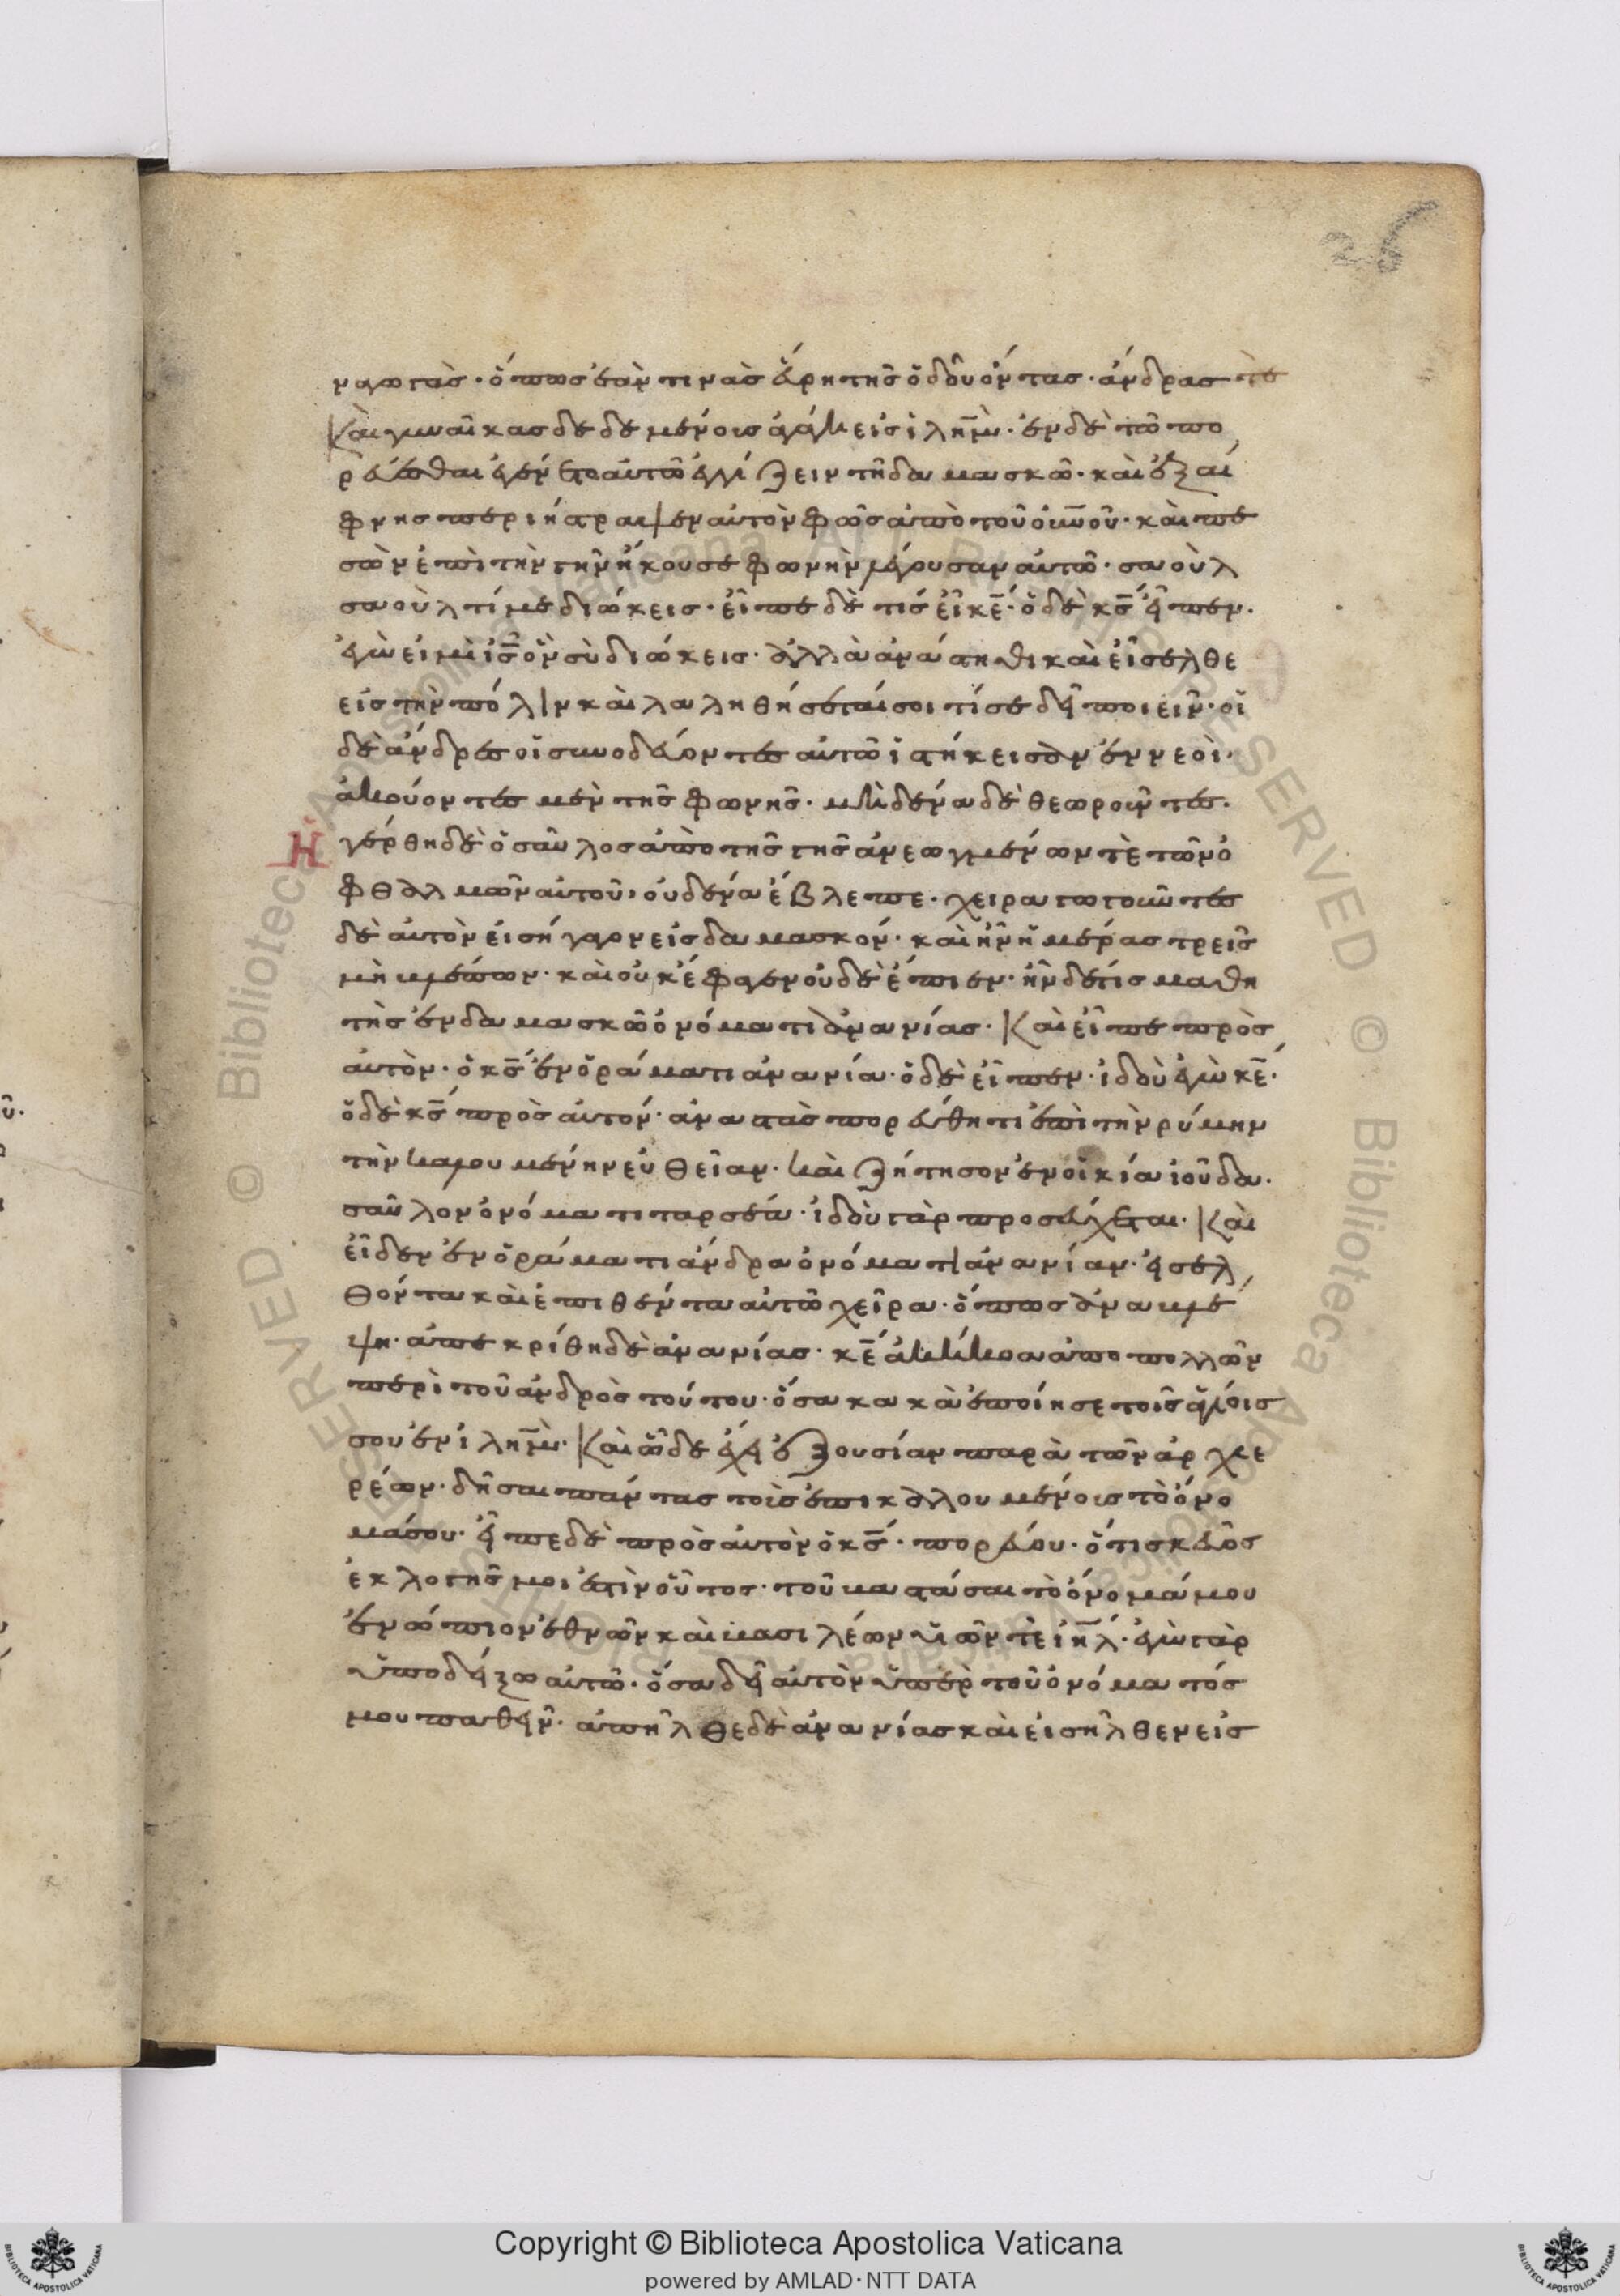 26
ναγωγὰς· ὅπως ἐάν τινας εὕρη τῆς ὁδοῦ ὄντας· ἄνδρας τὲ
καὶ γυναῖκας δεδεμένους ἀγάγη εἰς ἱλῆμ· ἐν δὲ τῶ πο
ρεύεσθαι ἐγένετο αὐτῶ ἐγγίζειν τῆ δαμασκῶ· καὶ ἐξαί
φνης περιήστραψεν αὐτὸν φῶς ἀπὸ τοῦ οὐνοῦ· καὶ πε
σὼν ἐπὶ τὴν γῆν ἤκουσε φωνὴν λέγουσαν αὐτῶ· σαοὺλ
σαοὺλ τί με διώκεις· εἶπε δὲ τίς εἶ κε· ὁ δὲ κς εἶπεν·
ἐγὼ εἰμὶ ις ὃν σὺ διώκεις· ἀλλὰ ἀνάστηθι καὶ εἴσελθε
εἰς τὴν πόλιν καὶ λαληθήσεταί σοι τί σε δεῖ ποιεῖν· οἱ
δὲ ἄνδρες οἱ συνοδεύοντες αὐτῶ ἱστήκεισαν ἐννεοὶ·
ἀκούοντες μὲν τῆς φωνῆς· μηδένα δὲ θεωροῦντες·
Ηγέρθη δὲ ὁ σαῦλος ἀπὸ τῆς γῆς ἀνεωγμένων τὲ τῶν ὀ
φθαλμῶν αὐτοῦ, οὐδένα ἔβλεπε· χειραγωγοῦντες
δὲ αὐτὸν εἰσήγαγον εἰς δαμασκόν· καὶ ἦν ἡμέρας τρεῖς
μὴ βλέπων· καὶ οὐκ ἔφαγεν οὐδὲ ἔπιεν· ἦν δέ τις μαθη
τὴς ἐν δαμασκῶ ὀνόματι ἀνανίας· καὶ εἶπε πρὸς
αὐτὸν· ὁ κς ἐν ὁράματι ἀνανία· ὁ δὲ εἶπεν· ἰδοὺ ἐγὼ κε·
ὁ δὲ κς πρὸς αὐτόν· ἀναστὰς πορεύθητι ἐπὶ τὴν ρύμην
τὴν καλουμένην εὐθεῖαν· καὶ ζήτησον ἐν οἰκία ἰοῦδα·
σαῦλον ὀνόματι ταρσέα· ἰδοὺ γὰρ προσεύχεται· καὶ
εἶδεν ἐν ὁράματι ἄνδρα ὀνόματι ἀνανίαν· εἰσελ
θόντα καὶ ἐπιθέντα αὐτῶ χεῖρα· ὅπως ἀναβλέ
ψη· ἀπεκρίθη δὲ ἀνανίας· κε ἀκήκοα ἀπὸ πολλῶν
περὶ τοῦ ἀνδρὸς τούτου· ὅσα κακὰ ἐποίησε τοῖς ἁγίοις
σου ἐν ἱλημ· καὶ ὧδε ἔχει ἐξουσίαν παρὰ τῶν ἀρχιε
ρέων· δῆσαι πάντας τοὺς ἐπικαλουμένους τὸ ὄνο
μά σου· εἶπε δὲ πρὸς αὐτὸν ὁ κς· πορεύου· ὅτι σκεῦος
ἐκλογῆς μοι ἐστὶν οὗτος· τοῦ βαστάσαι τὸ ὄνομά μου
ἐνώπιον ἐθνῶν καὶ βασιλέων υἱῶν τὲ ιηλ· ἐγὼ γὰρ
ὑποδείξω αὐτῶ· ὅσα δεῖ αὐτὸν ὑπὲρ τοῦ ὀνόματός
μου παθεῖν· ἀπῆλθε δὲ ἀνανίας καὶ εἰσῆλθεν εἰς
Copyright © Biblioteca Apostolica Vaticana
powered by AMLAD·NTT DATA